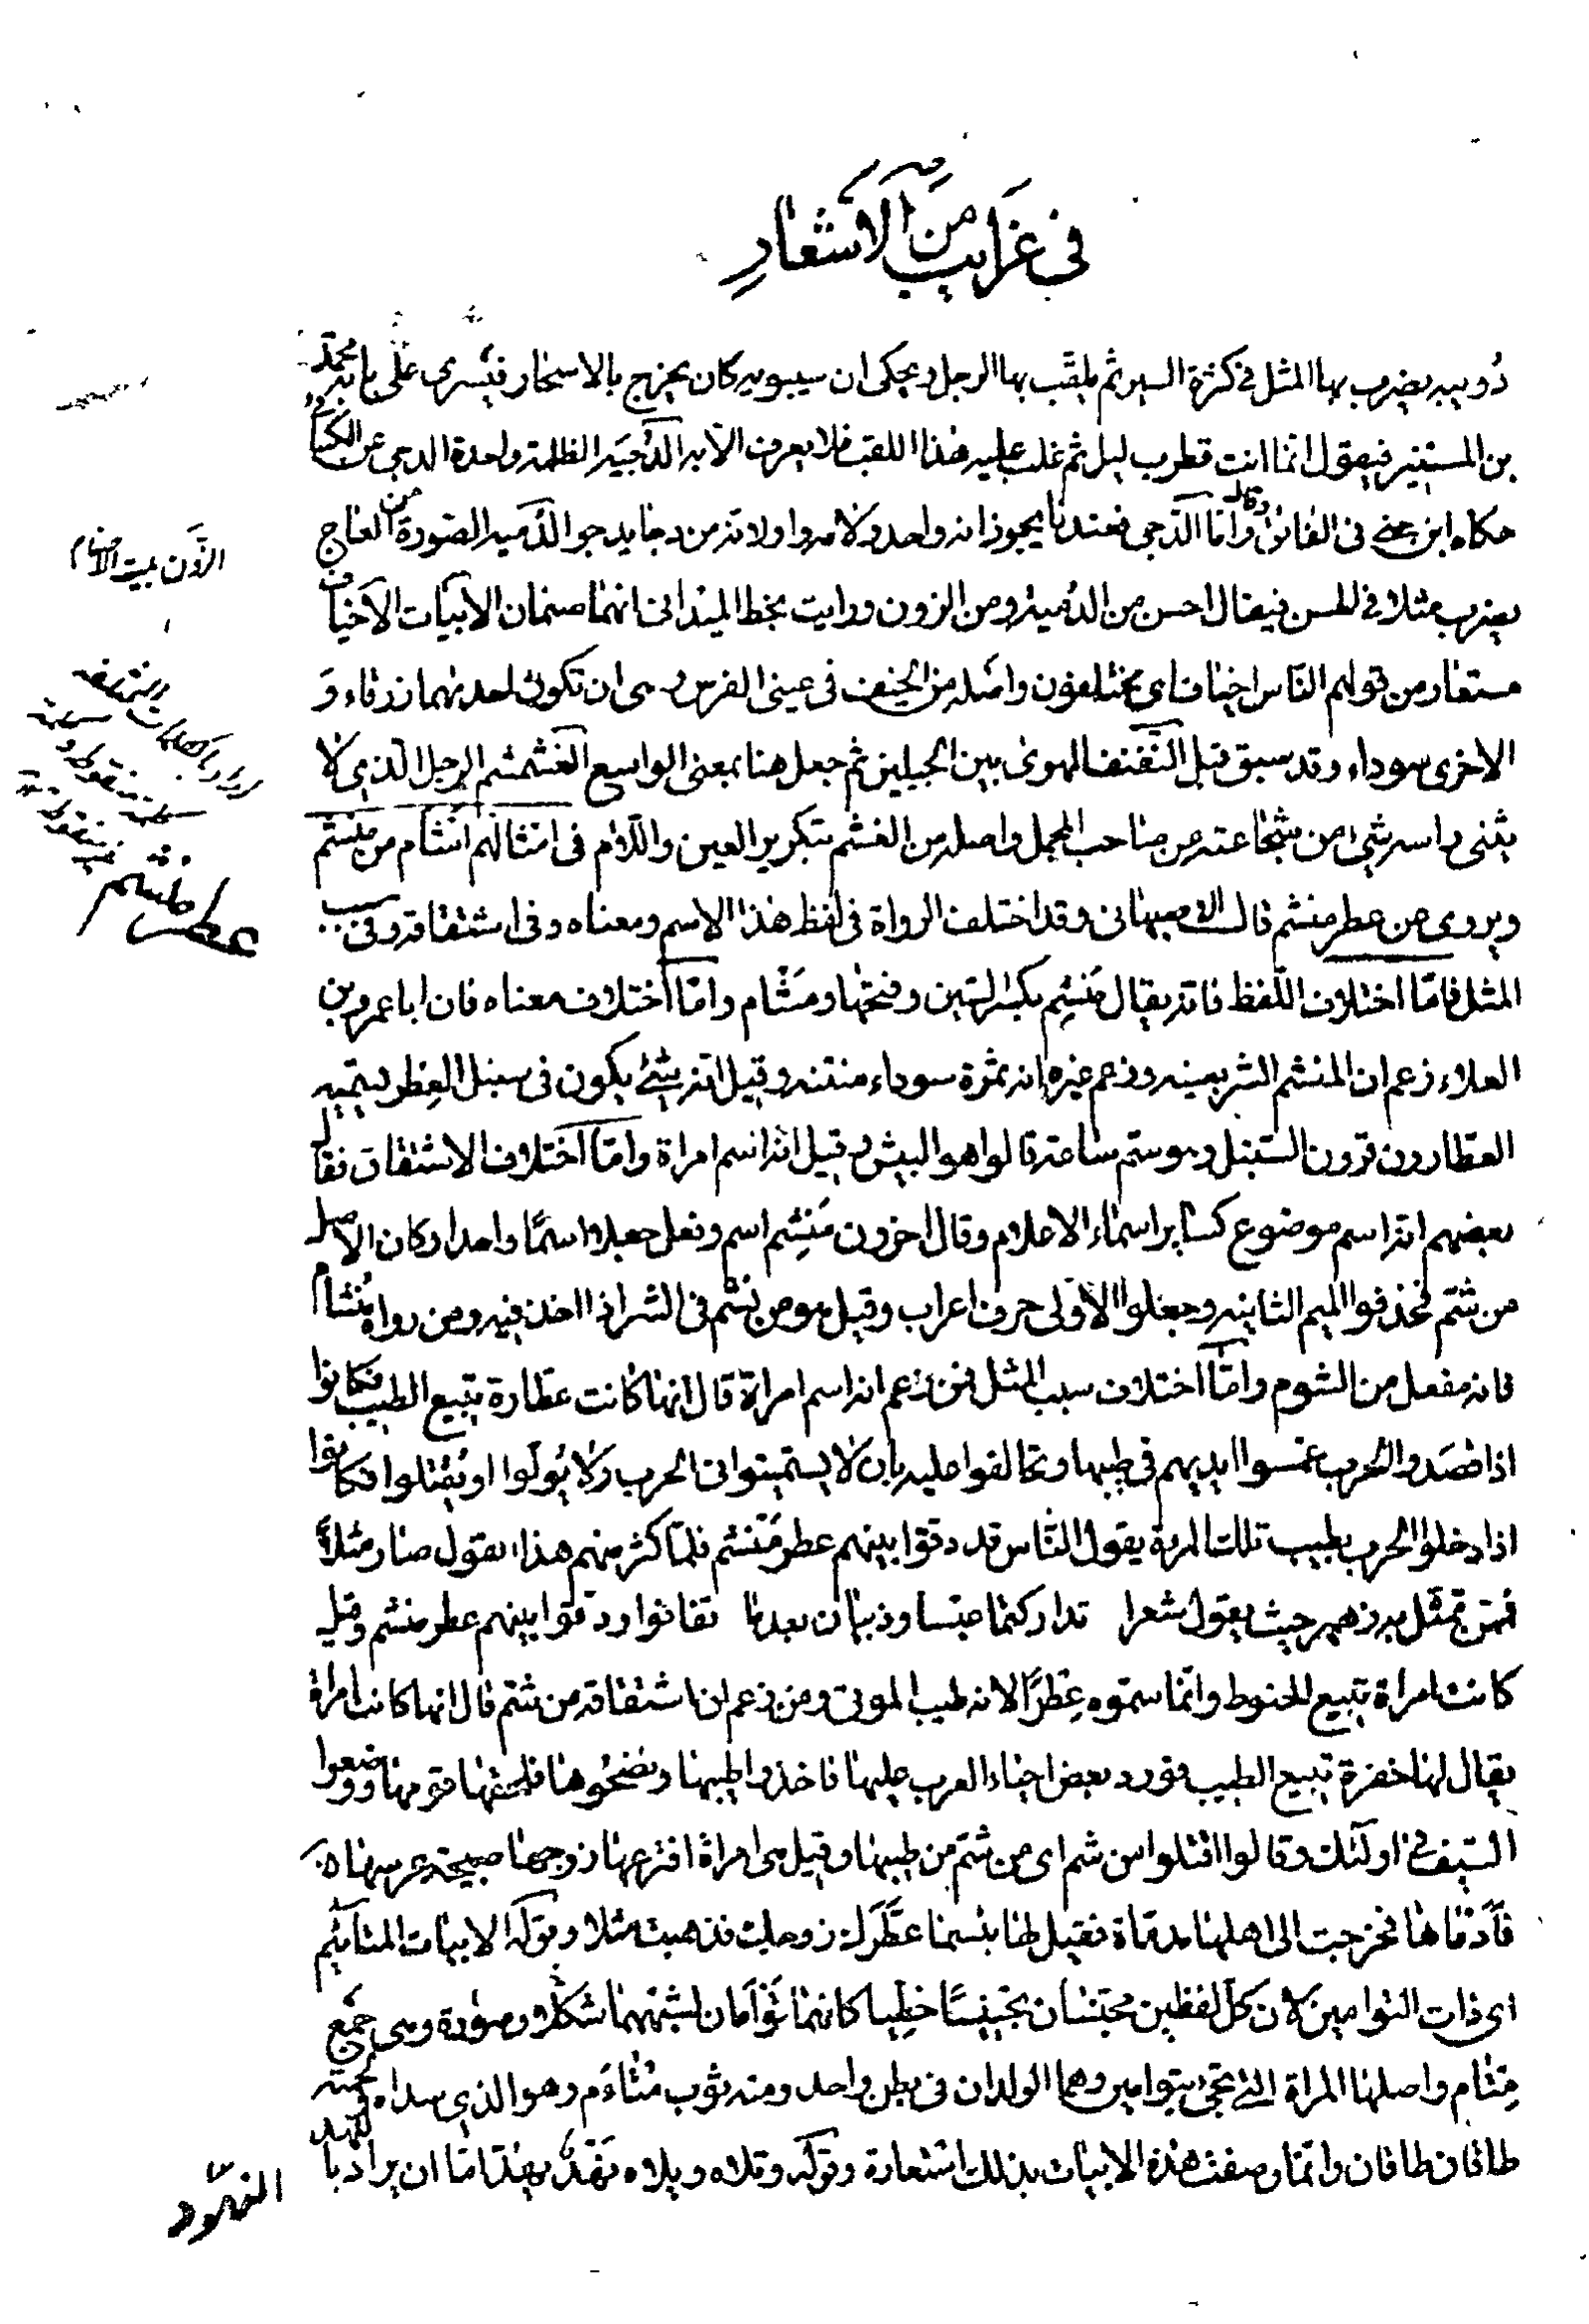 في غرايب من الاشعار
دُويبه يضرب بها المثل في كثرة السير ثم يلقّب بها الرجل ويحكى ان سيبويه كان يخرج بالاسحار فيرى على بابه محمّد
بن المستنير فيقول انما انت قطرب ليل ثم غلب عليه هذا اللقب فلا يعرف الا به الدُجيَة الظلمة واحدة الدجى عن
حكاه ابن جنى فى وقال وامّا الدّجى فعندنا يجوز انه واحد ولامه واو لانه من دجا يدجو الدّميه الصّورة من العاج
يضرب مثلا فى الحسن فيقال احسن من الدُمية ومن الزون ورايت بخط الميدانى انهما صنمان الابيات الاخياف
مستعار من قولهم النّاس اخياف اى مختلفون واصله من الخيف فى عينى الفرس وهى ان تكون احديهما زرقاء وَ
الاخرى سوداء وقد سبق قبل النّفنف المهوى بين الجبلين ثم جعل هنا بمعنى الواسع الغشمشم الرجل الّذي لا
يثنى راسه شئ من شجاعته عن صاحب المجمل واصله من الغشم بتكرير العين واللّام فى امثالهم اشأم من منشم
ويروى من عطر منشم قال الاصبهانى وقد اختلف الرواة فى لفظ هذا الاسم ومعناه وفى اشتقاقه وفى سبب
المثل فامّا اختلاف اللّفظ فانه يقال مَنشِم بكسر الشين وفتحها ومشأم وامّا اختلاف معناه فان ابا عمرو بن
العلاء زعم ان المنشم الشر بعينه وزعم غيره انه ثمرة سوداء منتنه وقيل انه شئ يكون فى سنبل العطر يسميه
العطارون قرون السّنبل وهو سمّ ساعة قالوا هو البيش وقيل انّه اسم امراة وامّا اختلاف الاشتقاق فقال
بعضهم انّه اسم موضوع كساير اسماء الاعلام وقال اخرون مَنشِم اسم وفعل جعلا اسمًا واحدا وكان الاصل
من شمّ فحذفوا الميم الثانيه وجعلوا الاولى حرف اعراب وقيل هو من نشّم فى الشر اذا اخذ فيه ومن رواه مشأم
فانه مفعل من الشوم وامّا اختلاف سبب المثل فمن زعم انه اسم امراة قال انها كانت عطارة تبيع الطيب فكانوا
اذا قصدوا الحرب غمسوا ايديهم فى طيبها وتحالفوا عليه بان لا يستميتوا فى الحرب ولا يُولّوا او يُقتلوا فكانوا
اذا دخلوا الحرب بطيب تلك المرة يقول النّاس قد دقوا بينهم عطر مَنشم فلمّا كثر منهم هذا القول صار مثلاً
فممّن تمثّل به زهير حيث يقول شعرا تداركتما عبسا وذبيان بعدما تفانوا ودقّوا بينهم عطر منشم وقيل
كانت امراة تبيع الحنوط وانّما سمّوه عِطرًا لانه طيب الموتى ومن زعم ان اشتقاقه من شمّ قال انها كانت امراة
يقال لها خفرة تبيع الطيب فورد بعض احياء العرب عليها فاخذوا طيبها وفضحوها فلحقها قومها ووضعوا
السّيف فى اولئك وقالوا اقتلوا من شم اى من شمّ من طيبها وقيل هى امراة افترعها زوجها صبيحة عرسها
فأدماها فخرجت الى اهلها مدمّاة فقيل لها بئسما عطّرك زوجك فذهبت مثلا وقوله الابيات المتائيم
اى ذات التوامين لان كل لفظين مجتنسان تجنيسًا خطيا كانهما توأمان لشبههما شكلا وصورة وهى جمع
مِتْئام واصلها المراة التى تجئ بتوامين وهما الولدان فى بطن واحد ومنه ثوب مُتْاءَم وهو الذي سداه ولحمته
طاقان طاقان وانّما وصفت هذه الابيات بذلك استعارة وقوله وتلاه ويلاه نَهْدٌ يهُدّ امّا ان يراد بالنهد
النهود
الزّون بيت الاصنام
عطر منشم